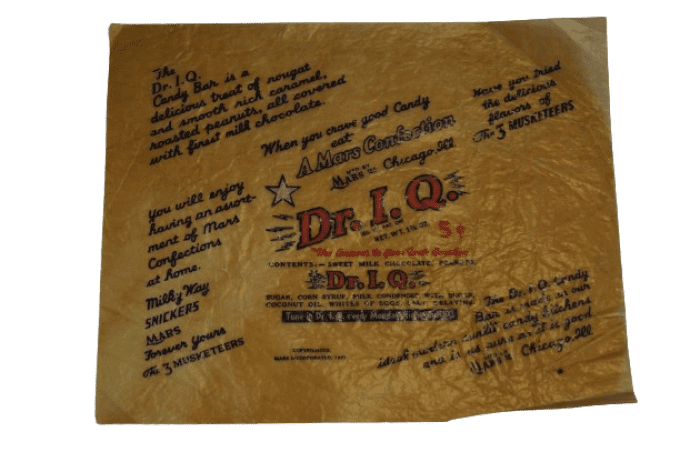 The
Dr. I. Q.
Candy Bar is a
delicious treat of nougat
and smooth rich caramel,
roasted peanuts, all covered
with finest milk chocolate.
When you crave good Candy
eat
A Mars Confection
MARS Chicago, Ill
Have you tried
the delicious
flavors of
The 3 MUSKETEERS
You will enjoy
having an assort-
ment of Mars
Confections
at home.
Milky Way
SNICKERS
MARS
Forever yours
The 3 MUSKETEERS
Dr. I. Q.
NET. WT. 5¢
CONTENTS:- SWEET MILK CHOCOLATE, PEANUTS,
Dr. I. Q.
SUGAR, CORN SYRUP, MILK, CONDENSED
COCONUT OIL, WHITES OF EGGS,
Tune in Dr. I. Q. every Monday
The Dr. I. Q. Candy
Bar is made in our
ideal modern candy kitchens
and is as pure as it is good
MARS Chicago, Ill